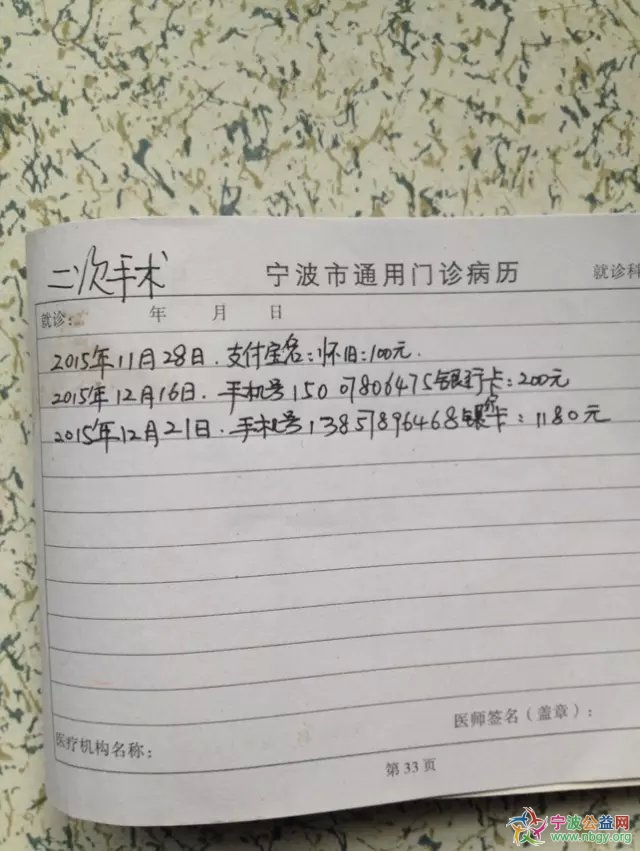 二次手术 宁波市通用门诊病历 就诊科
就诊: 年 月 日
2015年11月28日.支付宝名:怀旧:100元.
2015年12月16日.手机号15007806475银行卡:200元
2015年12月21日.手机号13857896468银行卡:1180元
医师签名(盖章):
医疗机构名称:
第33页
宁波公益网
www.nbgy.org